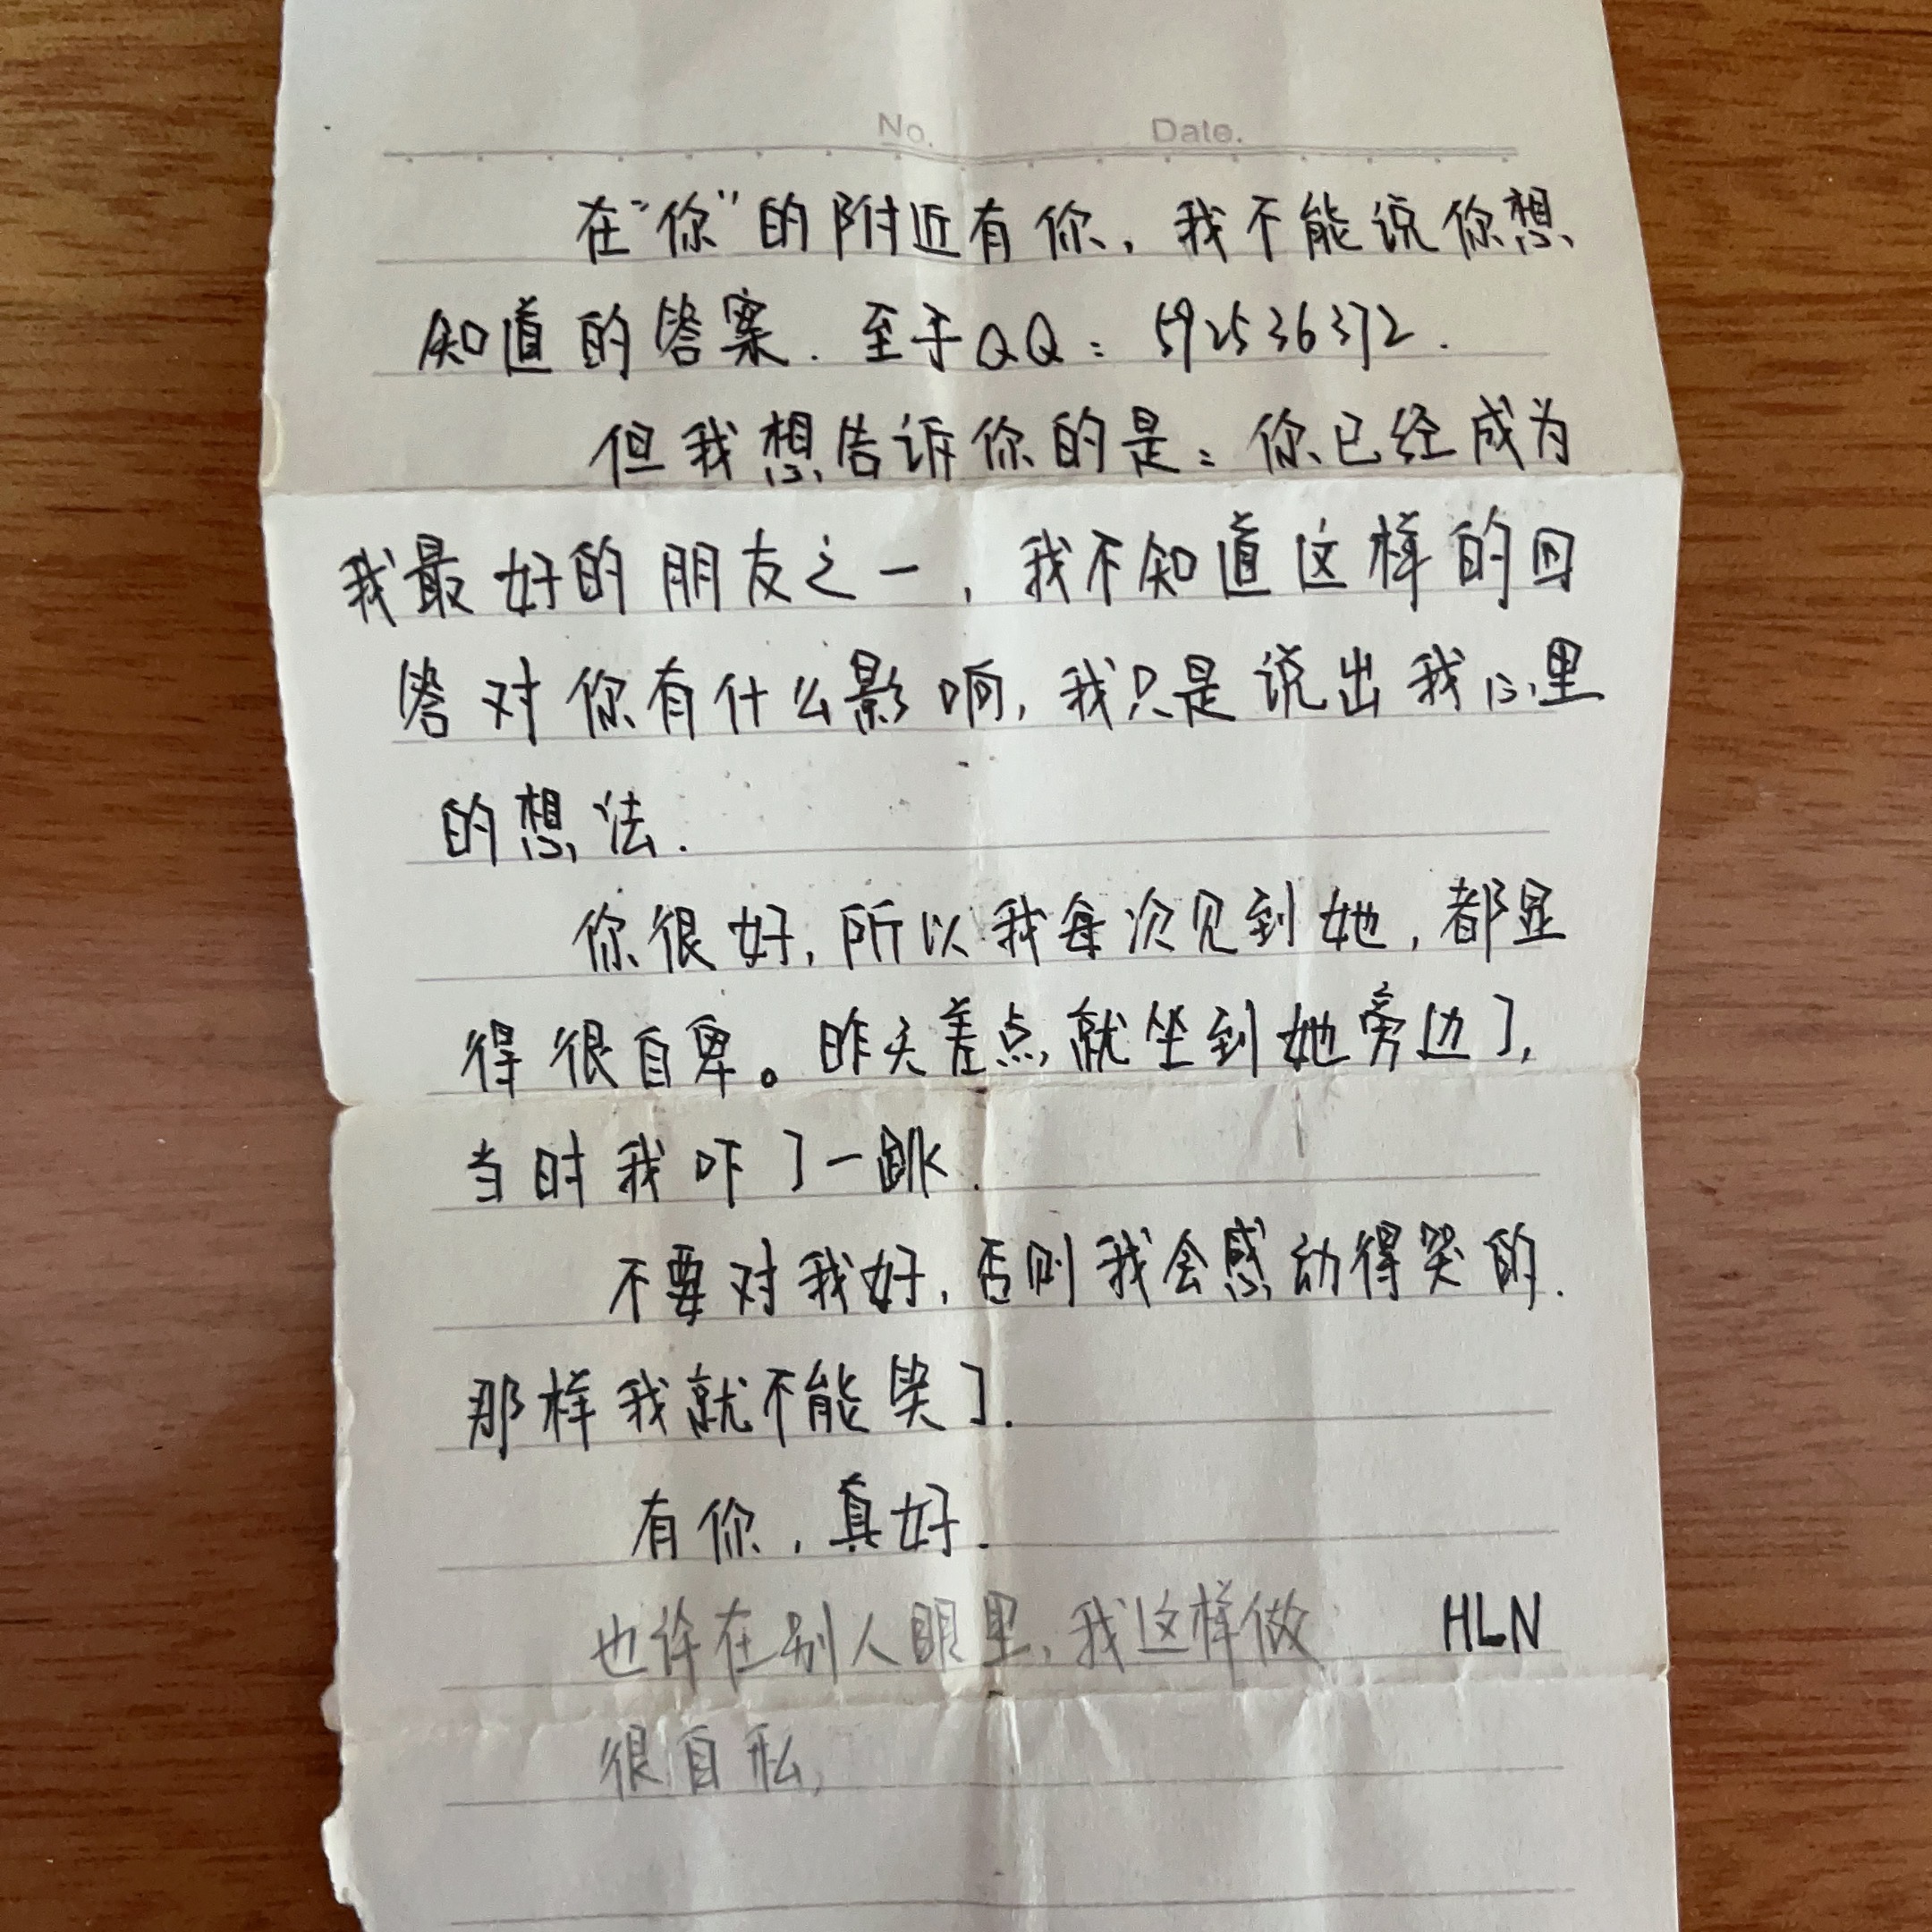 No. Date.
在“你”的附近有你，我不能说你想
知道的答案. 至于QQ：592536372.
但我想告诉你的是：你已经成为
我最好的朋友之一，我不知道这样的回
答对你有什么影响，我只是说出我心里
的想法.
你很好，所以我每次见到她，都显
得很自卑。昨天差点就坐到她旁边了，
当时我吓了一跳.
不要对我好，否则我会感动得哭的.
那样我就不能笑了.
有你，真好.
也许在别人眼里，我这样做 HLN
很自私，